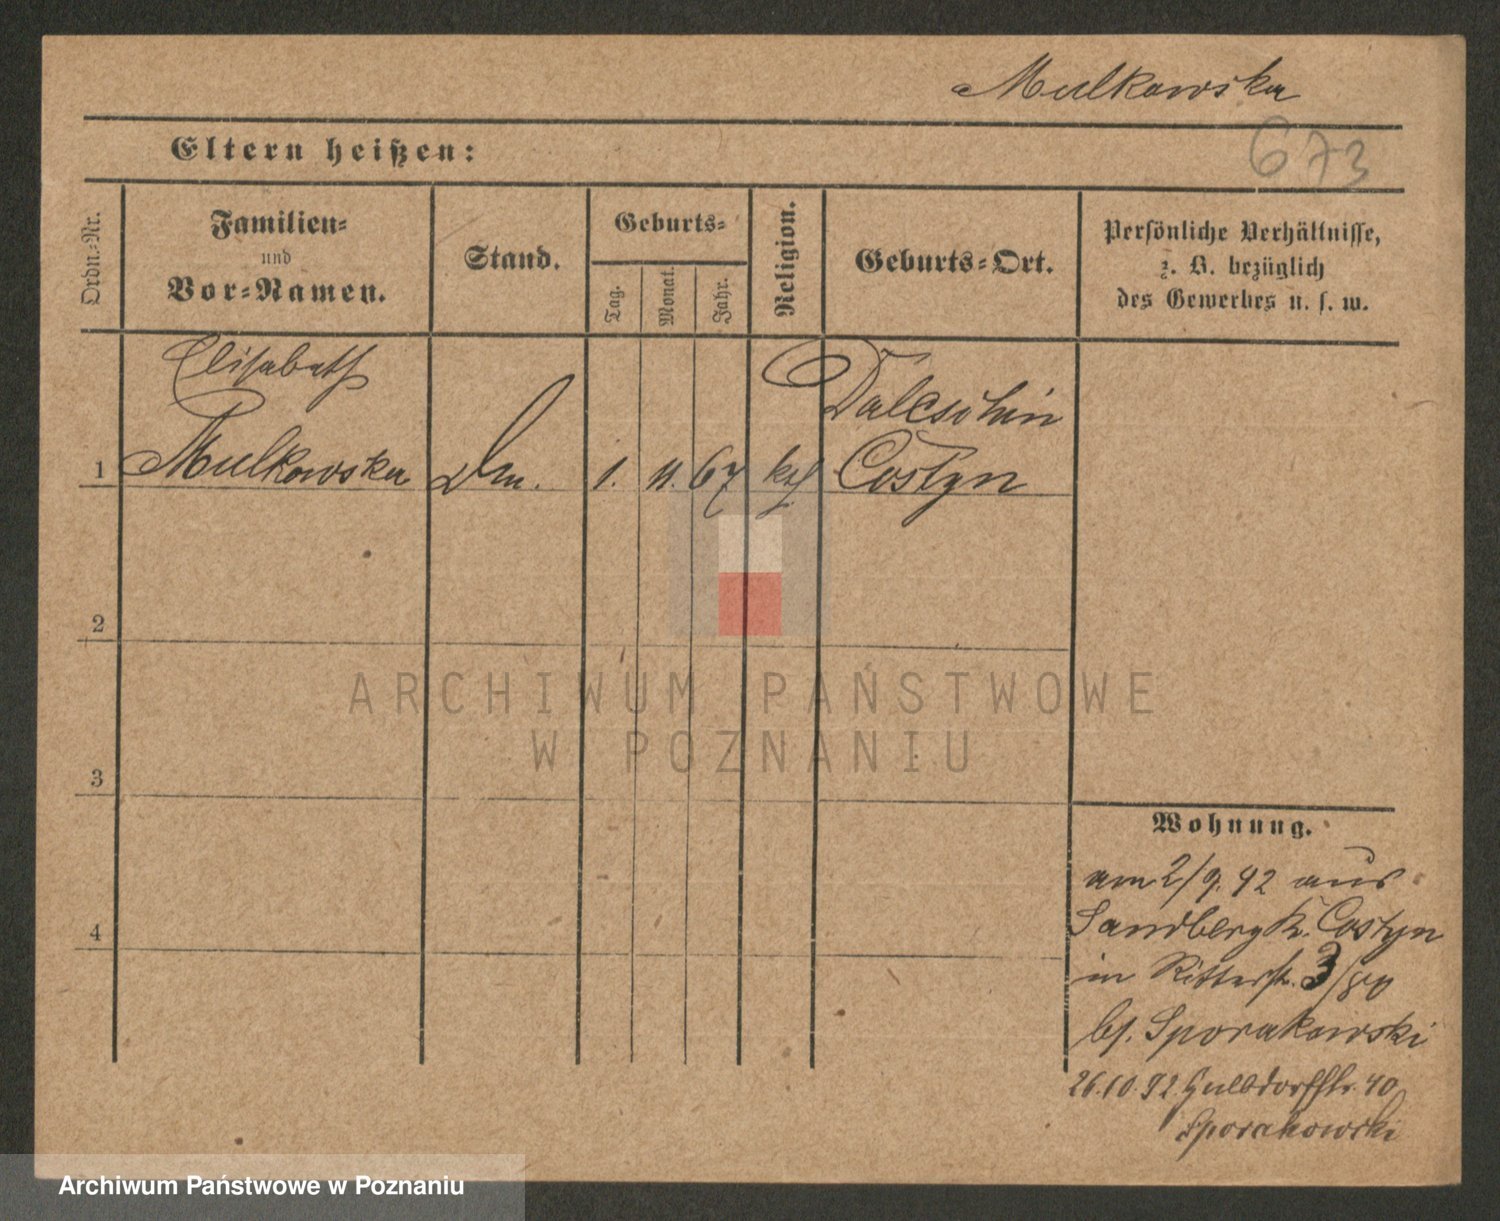 Mulkowska
673
Eltern heißen:
Ordn.-Nr.
Familien-
und
Vor-Namen.
Stand.
Geburts-
Tag.
Monat.
Jahr.
Religion.
Geburts-Ort.
Persönliche Verhältnisse,
z. B. bezüglich
des Gewerbes u. s. w.
Elisabeth
1 Mulkowska Dm. 1. 11. 67 kth Gostyn
2
3
4
Wohnung.
am 2/9. 92 aus
Sandberg K. Gostyn
in Ritterstr. 3
bei Sporakowski
26.10.92 40
Sporakowski
ARCHIWUM PAŃSTWOWE
W POZNANIU
Archiwum Państwowe w Poznaniu